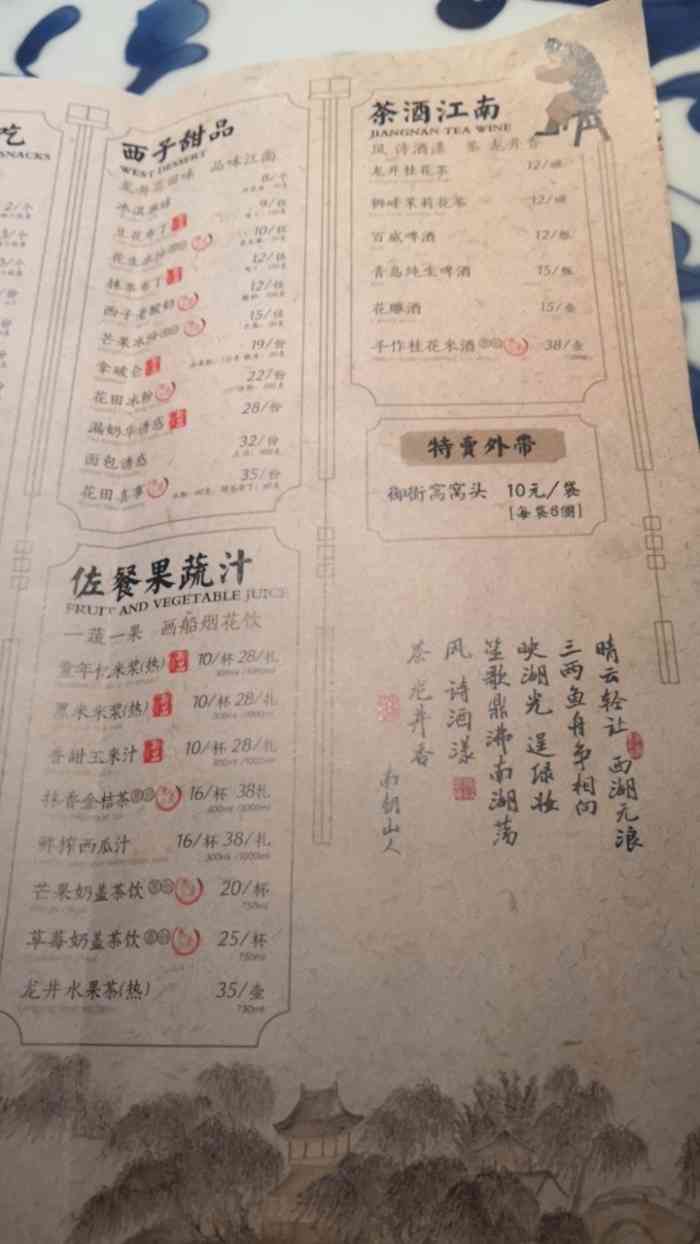 吃
SNACKS
2/个
西子甜品
WEST DESSERT
龙井菜甜味 品味江南
冰淇淋球 8/个
豆花布丁 9/份
花生冰沙 10/份
抹茶布丁 12/份
西子老酸奶 12/份
芒果冰沙 15/份
拿破仑 19/份
花田冰粉 22/份
漏奶华诱惑 28/份
面包诱惑 32/份
花田喜事 35/份
佐餐果蔬汁
FRUIT AND VEGETABLE JUICE
一蔬一果 画船烟花饮
童年花米浆(热) 10/杯 28/扎
黑米米浆(热) 10/杯 28/扎
香甜玉米汁 10/杯 28/扎
抹香金桔茶 16/杯 38扎
鲜榨西瓜汁 16/杯 38/扎
300ml /1000ml
芒果奶盖茶饮 20/杯
750ml
草莓奶盖茶饮 25/杯
750ml
龙井水果茶(热) 35/壶
750ml
茶酒江南
JIANGNAN TEA WINE
风诗酒漾 茶龙井香
龙井桂花茶 12/杯
狮峰茉莉花茶 12/杯
百威啤酒 12/瓶
青岛纯生啤酒 15/瓶
花雕酒 15/壶
手作桂花米酒 38/壶
特卖外带
御街窝窝头 10元/袋
[每袋6個]
晴云轻让 西湖无浪
三两鱼舟争相向
映湖光 逞绿妆
笙歌鼎沸南湖荡
风 诗酒漾
茶 龙井香
南朝山人